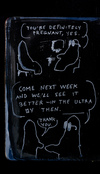 YOU'RE DEFINITELY
PREGNANT, YES.
COME NEXT WEEK
AND WE'LL SEE IT
BETTER IN THE ULTRA
BY THEN.
THANK
YOU